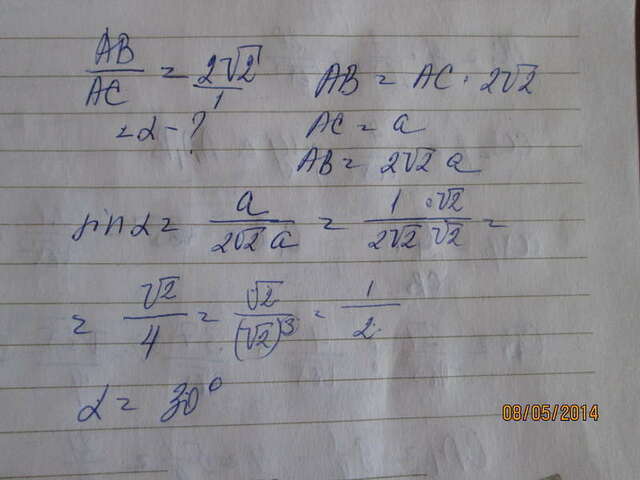 AB/AC = 2√2/1 AB = AC · 2√2
∠α - ? AC = a
AB = 2√2 a
sin α = a/(2√2 a) = (1 · √2)/(2√2 √2) =
= √2/4 = √2/(√2)³ = 1/2
α = 30°
08/05/2014